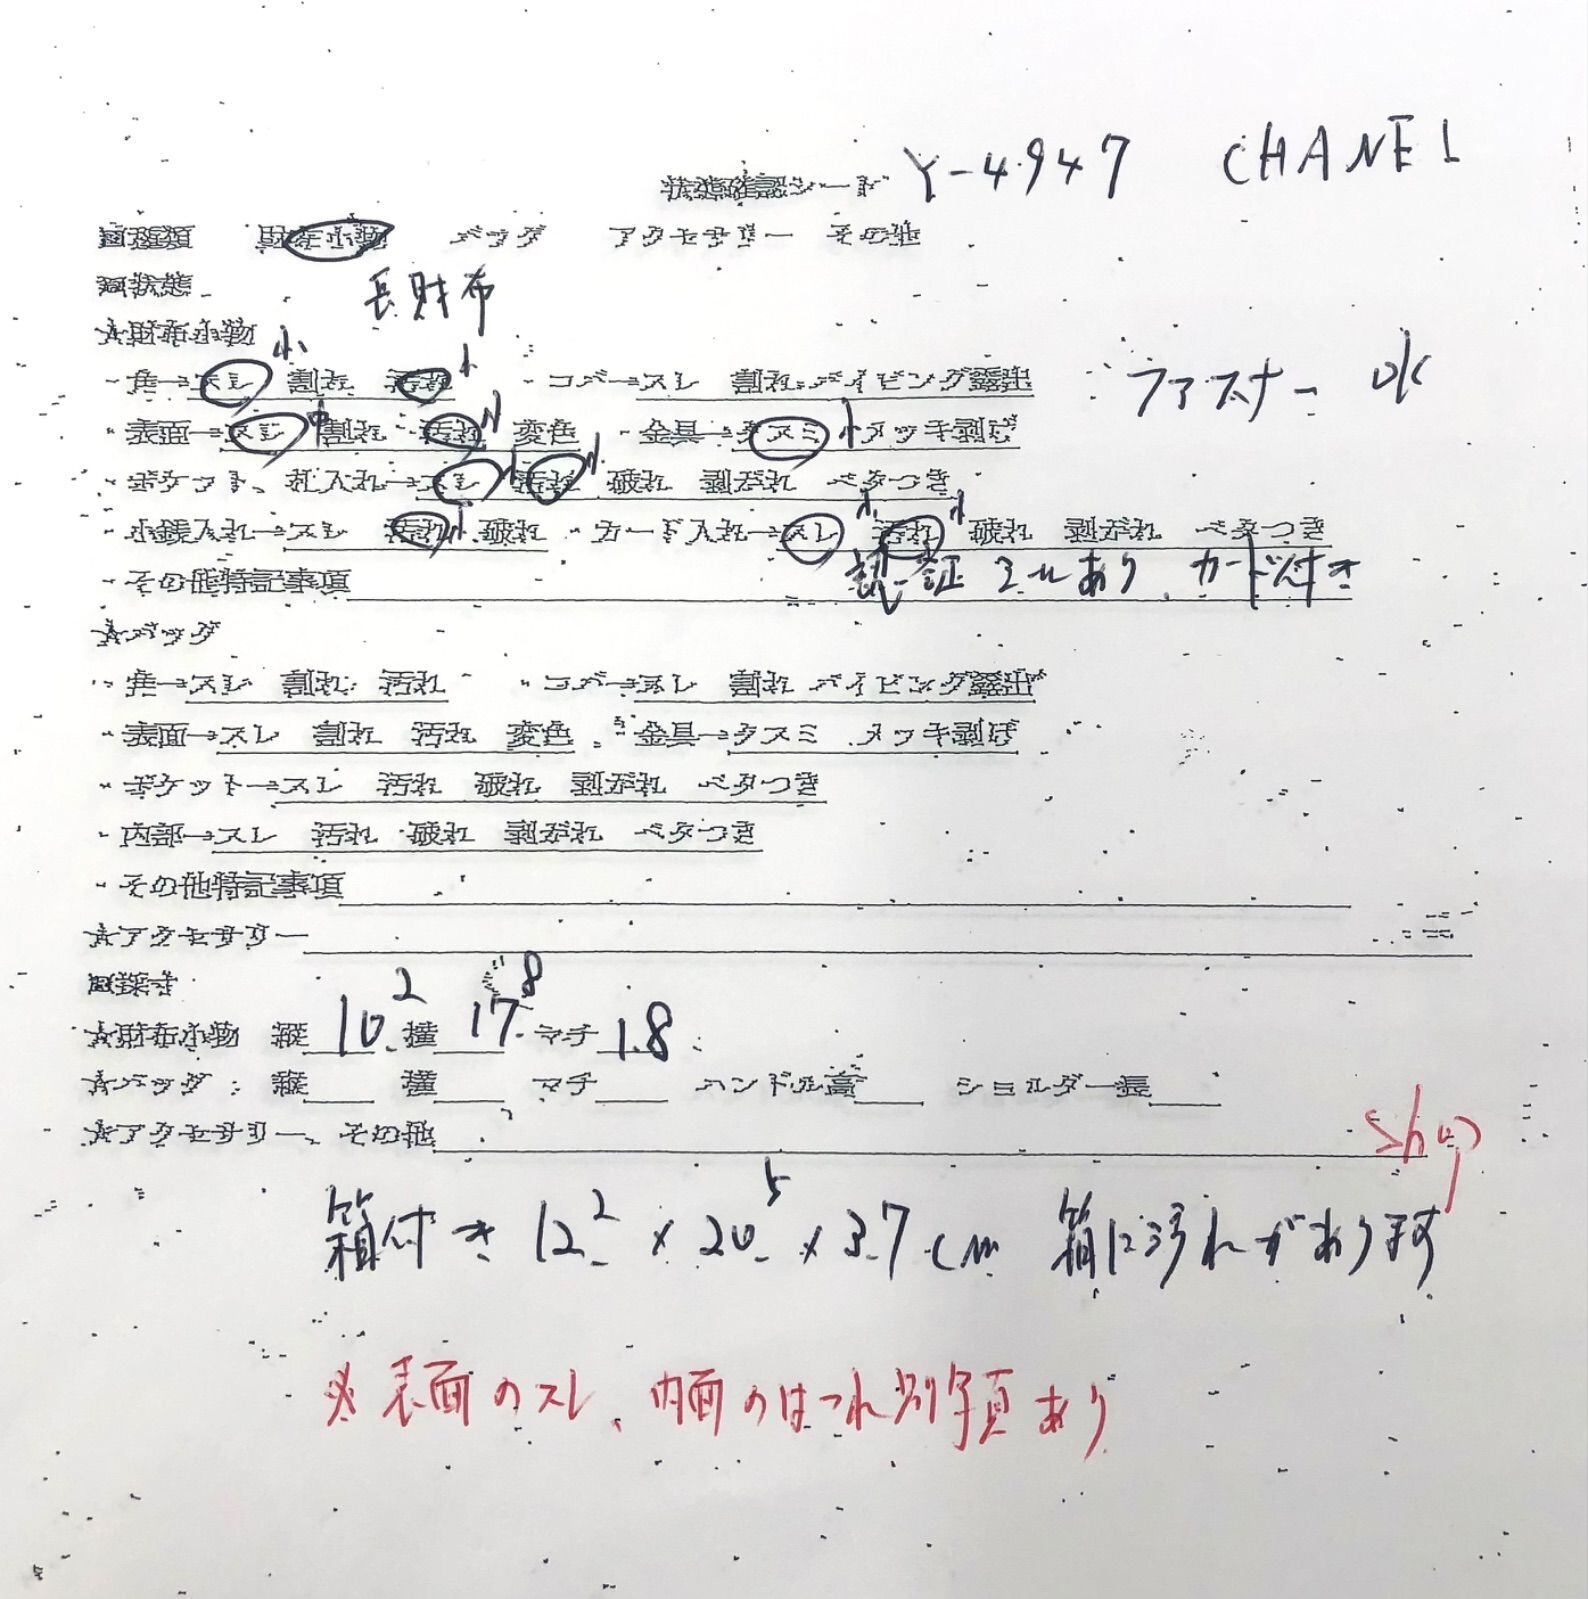 状態確認シート Y-4947 CHANEL
■種類 財布小物 バッグ アクセサリー その他
■状態
長財布
☆財布小物
・角→スレ 小 割れ 汚れ 小 ・コバ→スレ 割れ パイピング露出 ファスナー OK
・表面→スレ 中 割れ 汚れ 小 変色 ・金具→クスミ 小 メッキ剥げ
・ポケット、札入れ→スレ 小 汚れ 小 破れ 剥がれ ベタつき
・小銭入れ→スレ 汚れ 小 破れ ・カード入れ→スレ 小 汚れ 小 破れ 剥がれ ベタつき
・その他特記事項 認証シールあり カード付き
☆バッグ
・角→スレ 割れ 汚れ ・コバ→スレ 割れ パイピング露出
・表面→スレ 割れ 汚れ 変色 ・金具→クスミ メッキ剥げ
・ポケット→スレ 汚れ 破れ 剥がれ ベタつき
・内部→スレ 汚れ 破れ 剥がれ ベタつき
・その他特記事項
☆アクセサリー
■採寸
☆財布小物 縦 10.2 横 17.8 マチ 1.8
☆バッグ 縦 横 マチ ハンドル高 ショルダー長
☆アクセサリー、その他
shop
箱付き 12.2 × 20.5 × 3.7cm 箱に汚れがあります
※表面のスレ、内面のほつれ別写真あり